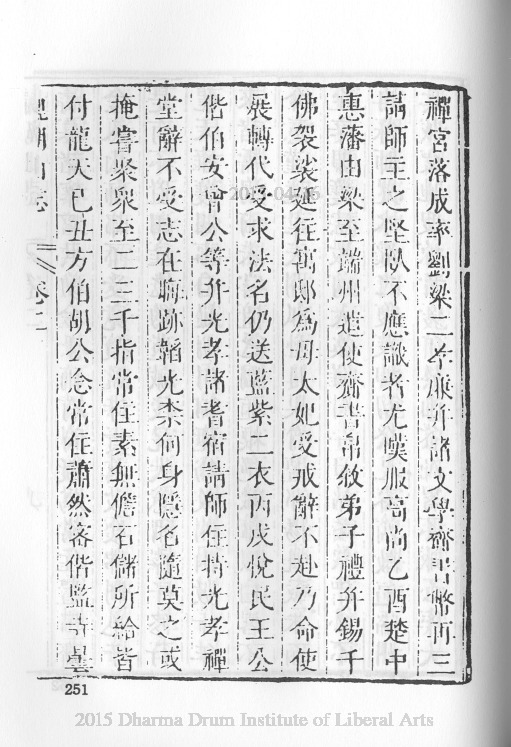 禪宮落成率劉梁二孝廉并諸文學齎書幣再三
請師主之堅臥不應識者尤嘆服高尚乙酉楚中
惠藩由梁至端州遣使齎書帛敘弟子禮并錫千
佛袈裟延往寓邸為母太妃受戒辭不赴乃命使
展轉代受求法名仍送藍紫二衣丙戌悅民王公
偕伯安曾公等并光孝諸耆宿請師住持光孝禪
堂辭不受志在晦跡韜光柰何身隱名隨莫之或
掩嘗聚衆至二三千指常住素無儋石儲所給皆
付龍天己丑方伯胡公念常住蕭然客偕監寺曇
山志 卷二
251
2015 Dharma Drum Institute of Liberal Arts